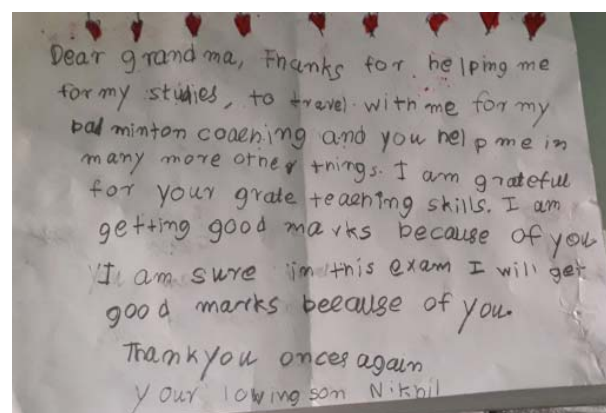 Dear grandma, Thanks for helping me
for my studies, to travel with me for my
badminton coaching and you help me in
many more other things. I am grateful
for your grate teaching skills. I am
getting good marks because of you
I am sure in this exam I will get
good marks because of you.
Thank you onces again
your loving son Nikhil